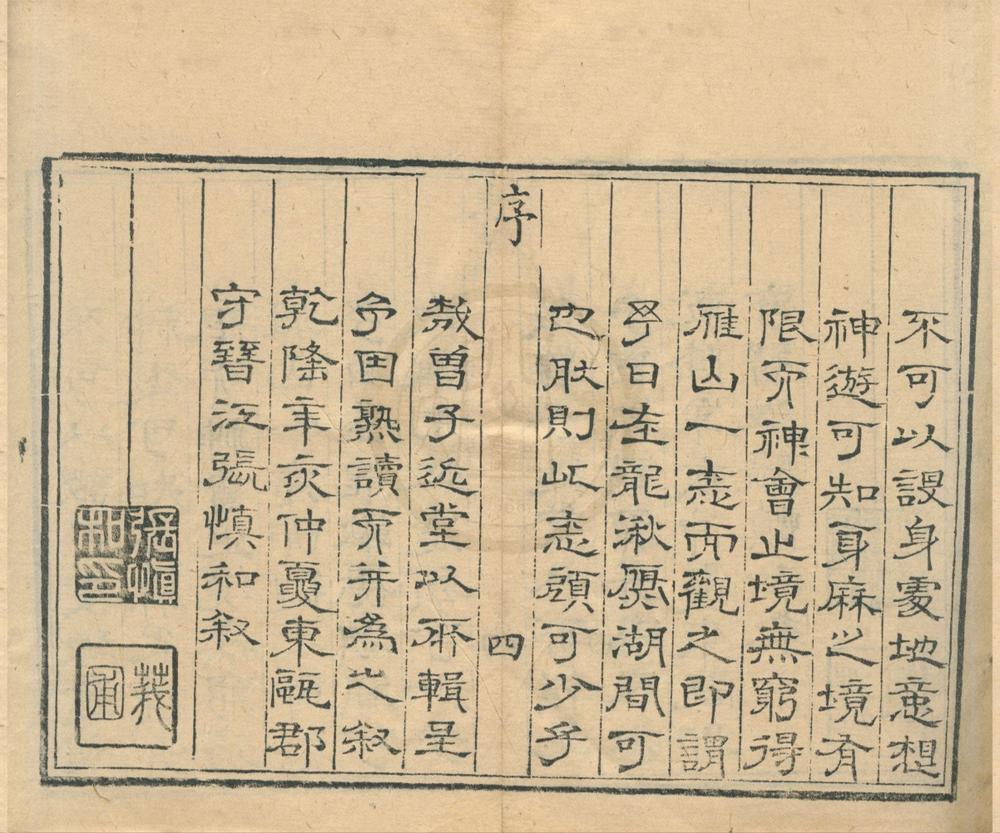 不可以設身處地意想
神遊可知身厤之境有
限而神會之境無窮得
雁山一志而觀之即謂
吾日在龍湫鴈湖間可
也肰則此志顧可少乎
序
四
哉曾子近堂以所輯呈
予因熟讀而并為之叙
乾隆辛亥仲夏東甌郡
守晉江張慎和叙
張慎和印
莪圃